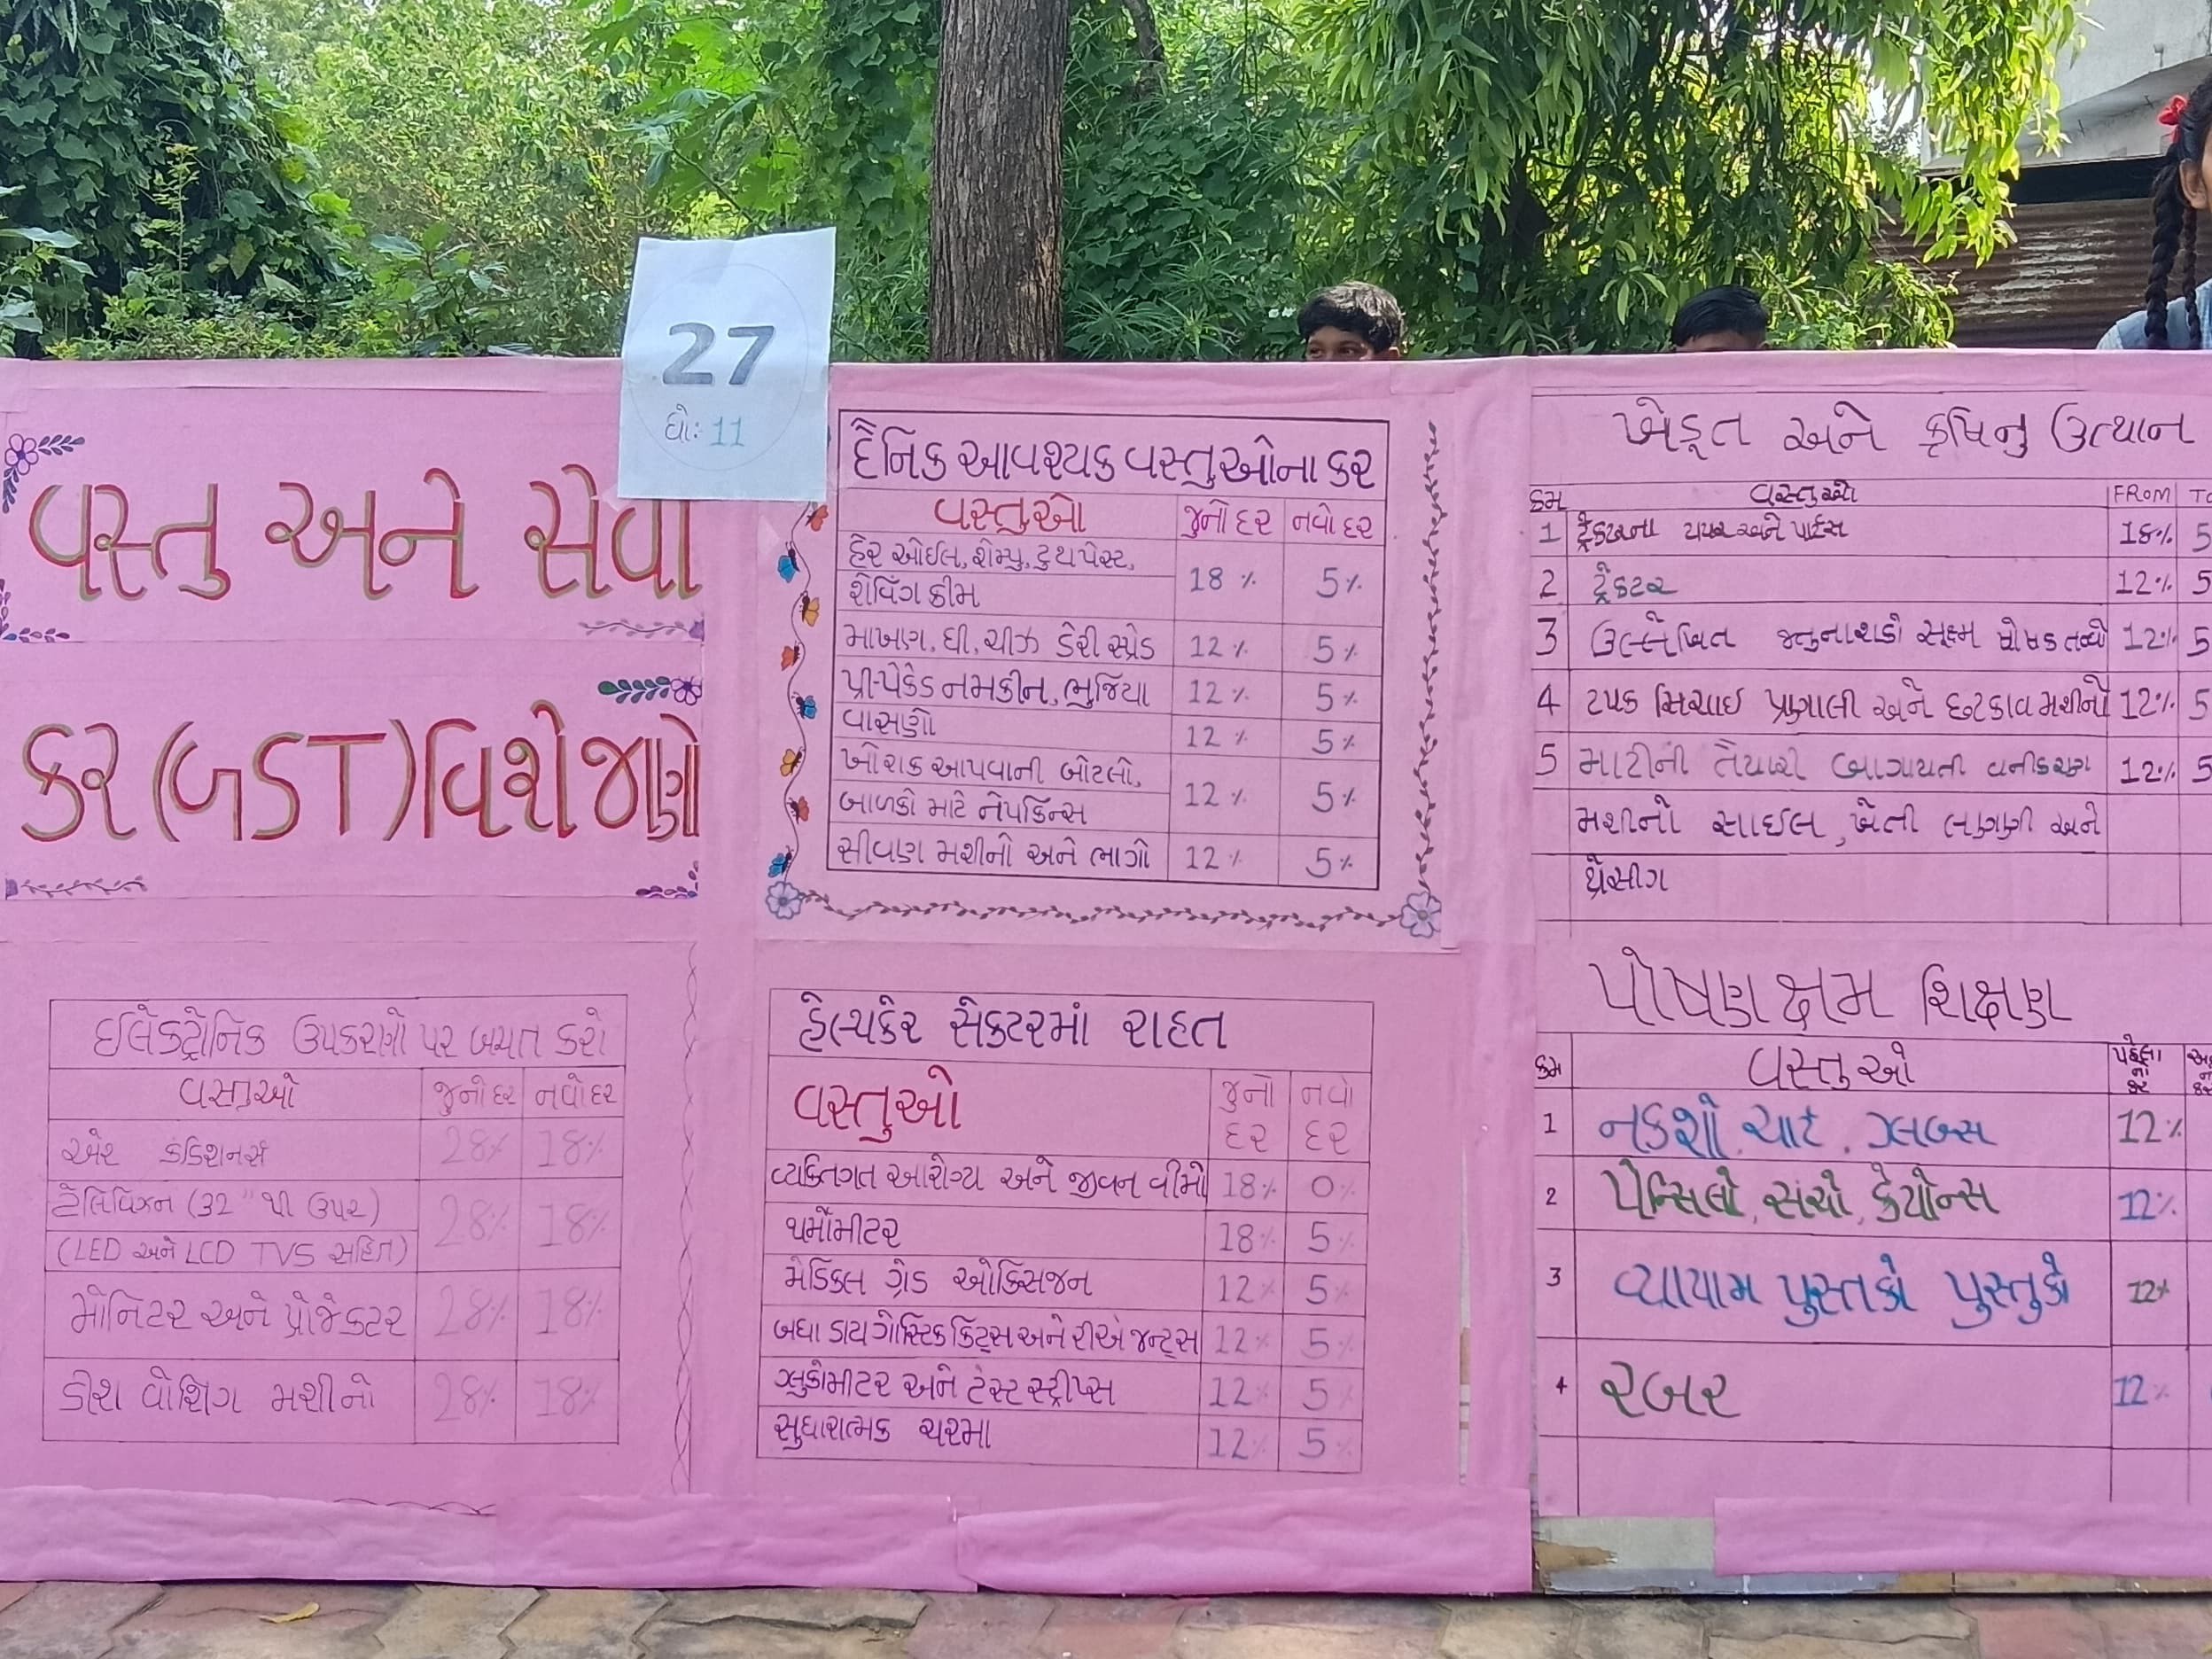 27
ધો: 11
વસ્તુ અને સેવા
કર (GST) વિશે જાણો
દૈનિક આવશ્યક વસ્તુઓના કર
વસ્તુઓ જુનો દર નવો દર
હેર ઓઈલ, શેમ્પુ, ટુથપેસ્ટ,
શેવિંગ ક્રીમ 18 % 5%
માખણ, ઘી, ચીઝ ડેરી સ્પ્રેડ 12 % 5%
પ્રી-પેકેડ નમકીન, ભુજિયા 12 % 5%
વાસણો 12 % 5%
ખોરાક આપવાની બોટલો,
બાળકો માટે નેપકિન્સ 12 % 5%
સીવણ મશીનો અને ભાગો 12 % 5%
ખેડૂત અને કૃષિનુ ઉત્થાન
ક્રમ વસ્તુઓ FROM
1 ટ્રેક્ટરના ટાયર અને પાર્ટસ 18% 5
2 ટ્રેકટર 12% 5
3 ઉલ્લેખિત જતુનાશકો સૂક્ષ્મ પોષક તત્વો 12% 5
4 ટપક સિચાઇ પ્રણાલી અને છટકાવ મશીનો 12% 5
5 માટીની તૈયારી બાગાયતી વનીકરણ 12% 5
મશીનો સાઈલ, ખેતી લાગણી અને
થ્રેસીગ
ઈલેક્ટ્રોનિક ઉપકરણો પર બચત કરો
વસ્તુઓ જુનો દર નવો દર
એર કંડિશનર્સ 28% 18%
ટેલિવિઝન (32" થી ઉપર)
(LED અને LCD TVS સહિત) 28% 18%
મોનિટર અને પ્રોજેકટર 28% 18%
ડીશ વોશિંગ મશીનો 28% 18%
હેલ્થકેર સેક્ટરમાં રાહત
વસ્તુઓ જુનો દર નવો દર
વ્યકિતગત આરોગ્ય અને જીવન વીમો 18% 0%
થર્મોમીટર 18% 5%
મેડિકલ ગ્રેડ ઓક્સિજન 12% 5%
બધા ડાયગ્નોસ્ટિક કિટ્સ અને રીએજન્ટ્સ 12% 5%
ગ્લુકોમીટર અને ટેસ્ટ સ્ટ્રીપ્સ 12% 5%
સુધારાત્મક ચશ્મા 12% 5%
પોષણ ક્ષમ શિક્ષણ
ક્રમ વસ્તુઓ પહેલાનો દર
1 નકશો, ચાર્ટ, ગ્લબ્સ 12%
2 પેન્સિલો, સંચો, ક્રેયોન્સ 12%
3 વ્યાયામ પુસ્તકો પુસ્તુકો 12%
4 રબર 12%